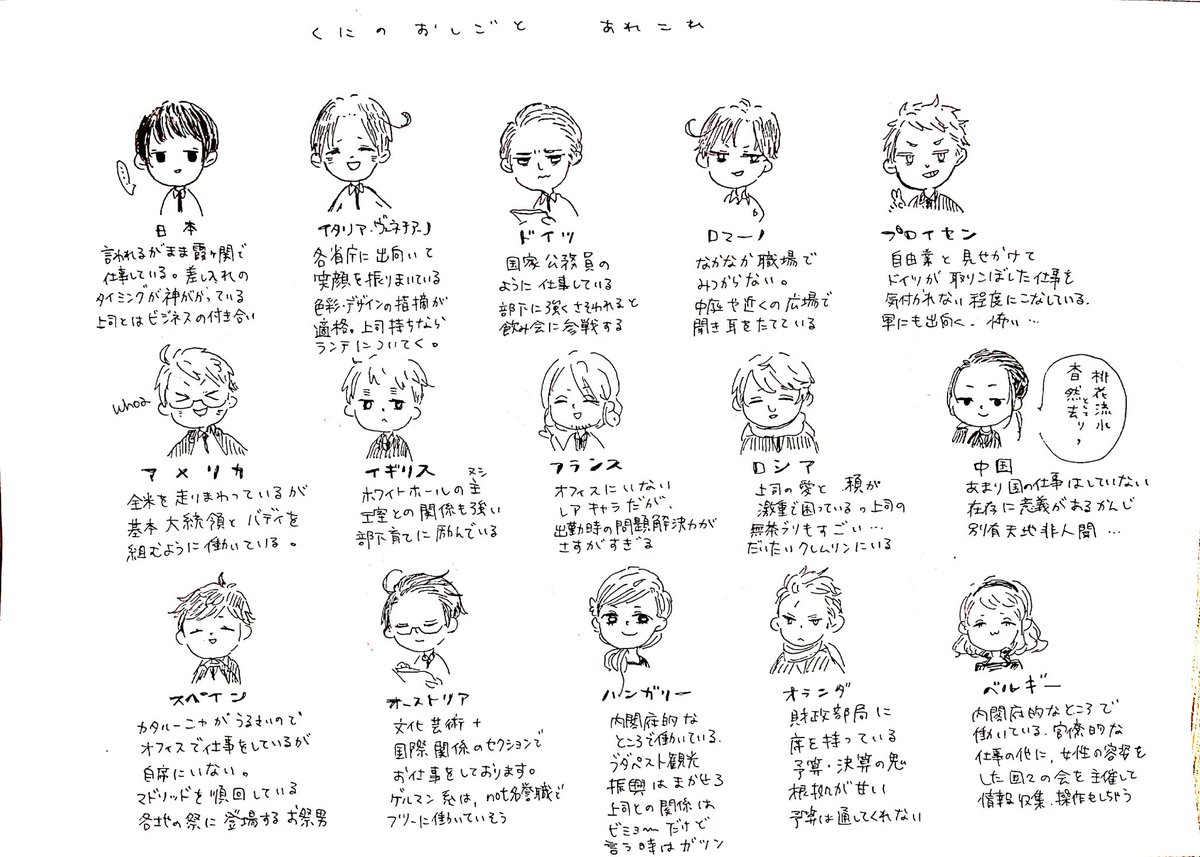 くにのおしごと あれこれ
日本
言われるがまま霞ヶ関で
仕事している。差し入れの
タイミングが神がかっている
上司とはビジネスの付き合い
イタリア・ヴェネチアーノ
各省庁に出向いて
笑顔を振りまいている
色彩・デザインの指摘が
適格。上司持ちなら
ランチについてく。
ドイツ
国家公務員の
ように仕事している
部下に強くさそわれると
飲み会に参戦する
ロマーノ
なかなか職場で
みつからない。
中庭や近くの広場で
聞き耳をたてている
プロイセン
自由業と見せかけて
ドイツが取りこぼした仕事を
気付かれない程度にこなしている.
軍にも出向く.怖い…
whoa
アメリカ
全米を走りまわっているが
基本大統領とバディを
組むように働いている。
イギリス
ホワイトホールの主
ヌシ
王室との関係も強い
部下育てに励んでいる
フランス
オフィスにいない
レアキャラだが、
出勤時の問題解決力が
さすがすぎる
ロシア
上司の愛と 頼が
激重で困っているっ上司の
無茶ぶりもすごい…
だいたいクレムリンにいる
桃花流水
杳然去り,
中国
あまり国の仕事はしていない
在存に意義があるかんじ
別有天地非人間…
スペイン
カタルーニャがうるさいので
オフィスで仕事をしているが
自席にいない。
マドリッドを順回している
各地の祭に登場するお祭男
オーストリア
文化芸術+
国際関係のセクションで
お仕事をしております。
ゲルマン系は、not名誉職で
フツーに働いていそう
ハンガリー
内閣府的な
ところで働いている.
ブダペスト観光
振興はまかせろ
上司との関係は
ビミョ〜だけど
言う時はガツン
オランダ
財政部局に
席を持っている
予算・決算の鬼
根拠が甘い
予算は通してくれない
ベルギー
内閣府的なところで
働いている.官僚的な
仕事の他に、女性の容姿を
した国々の会を主催して
情報収集.操作もしちゃう